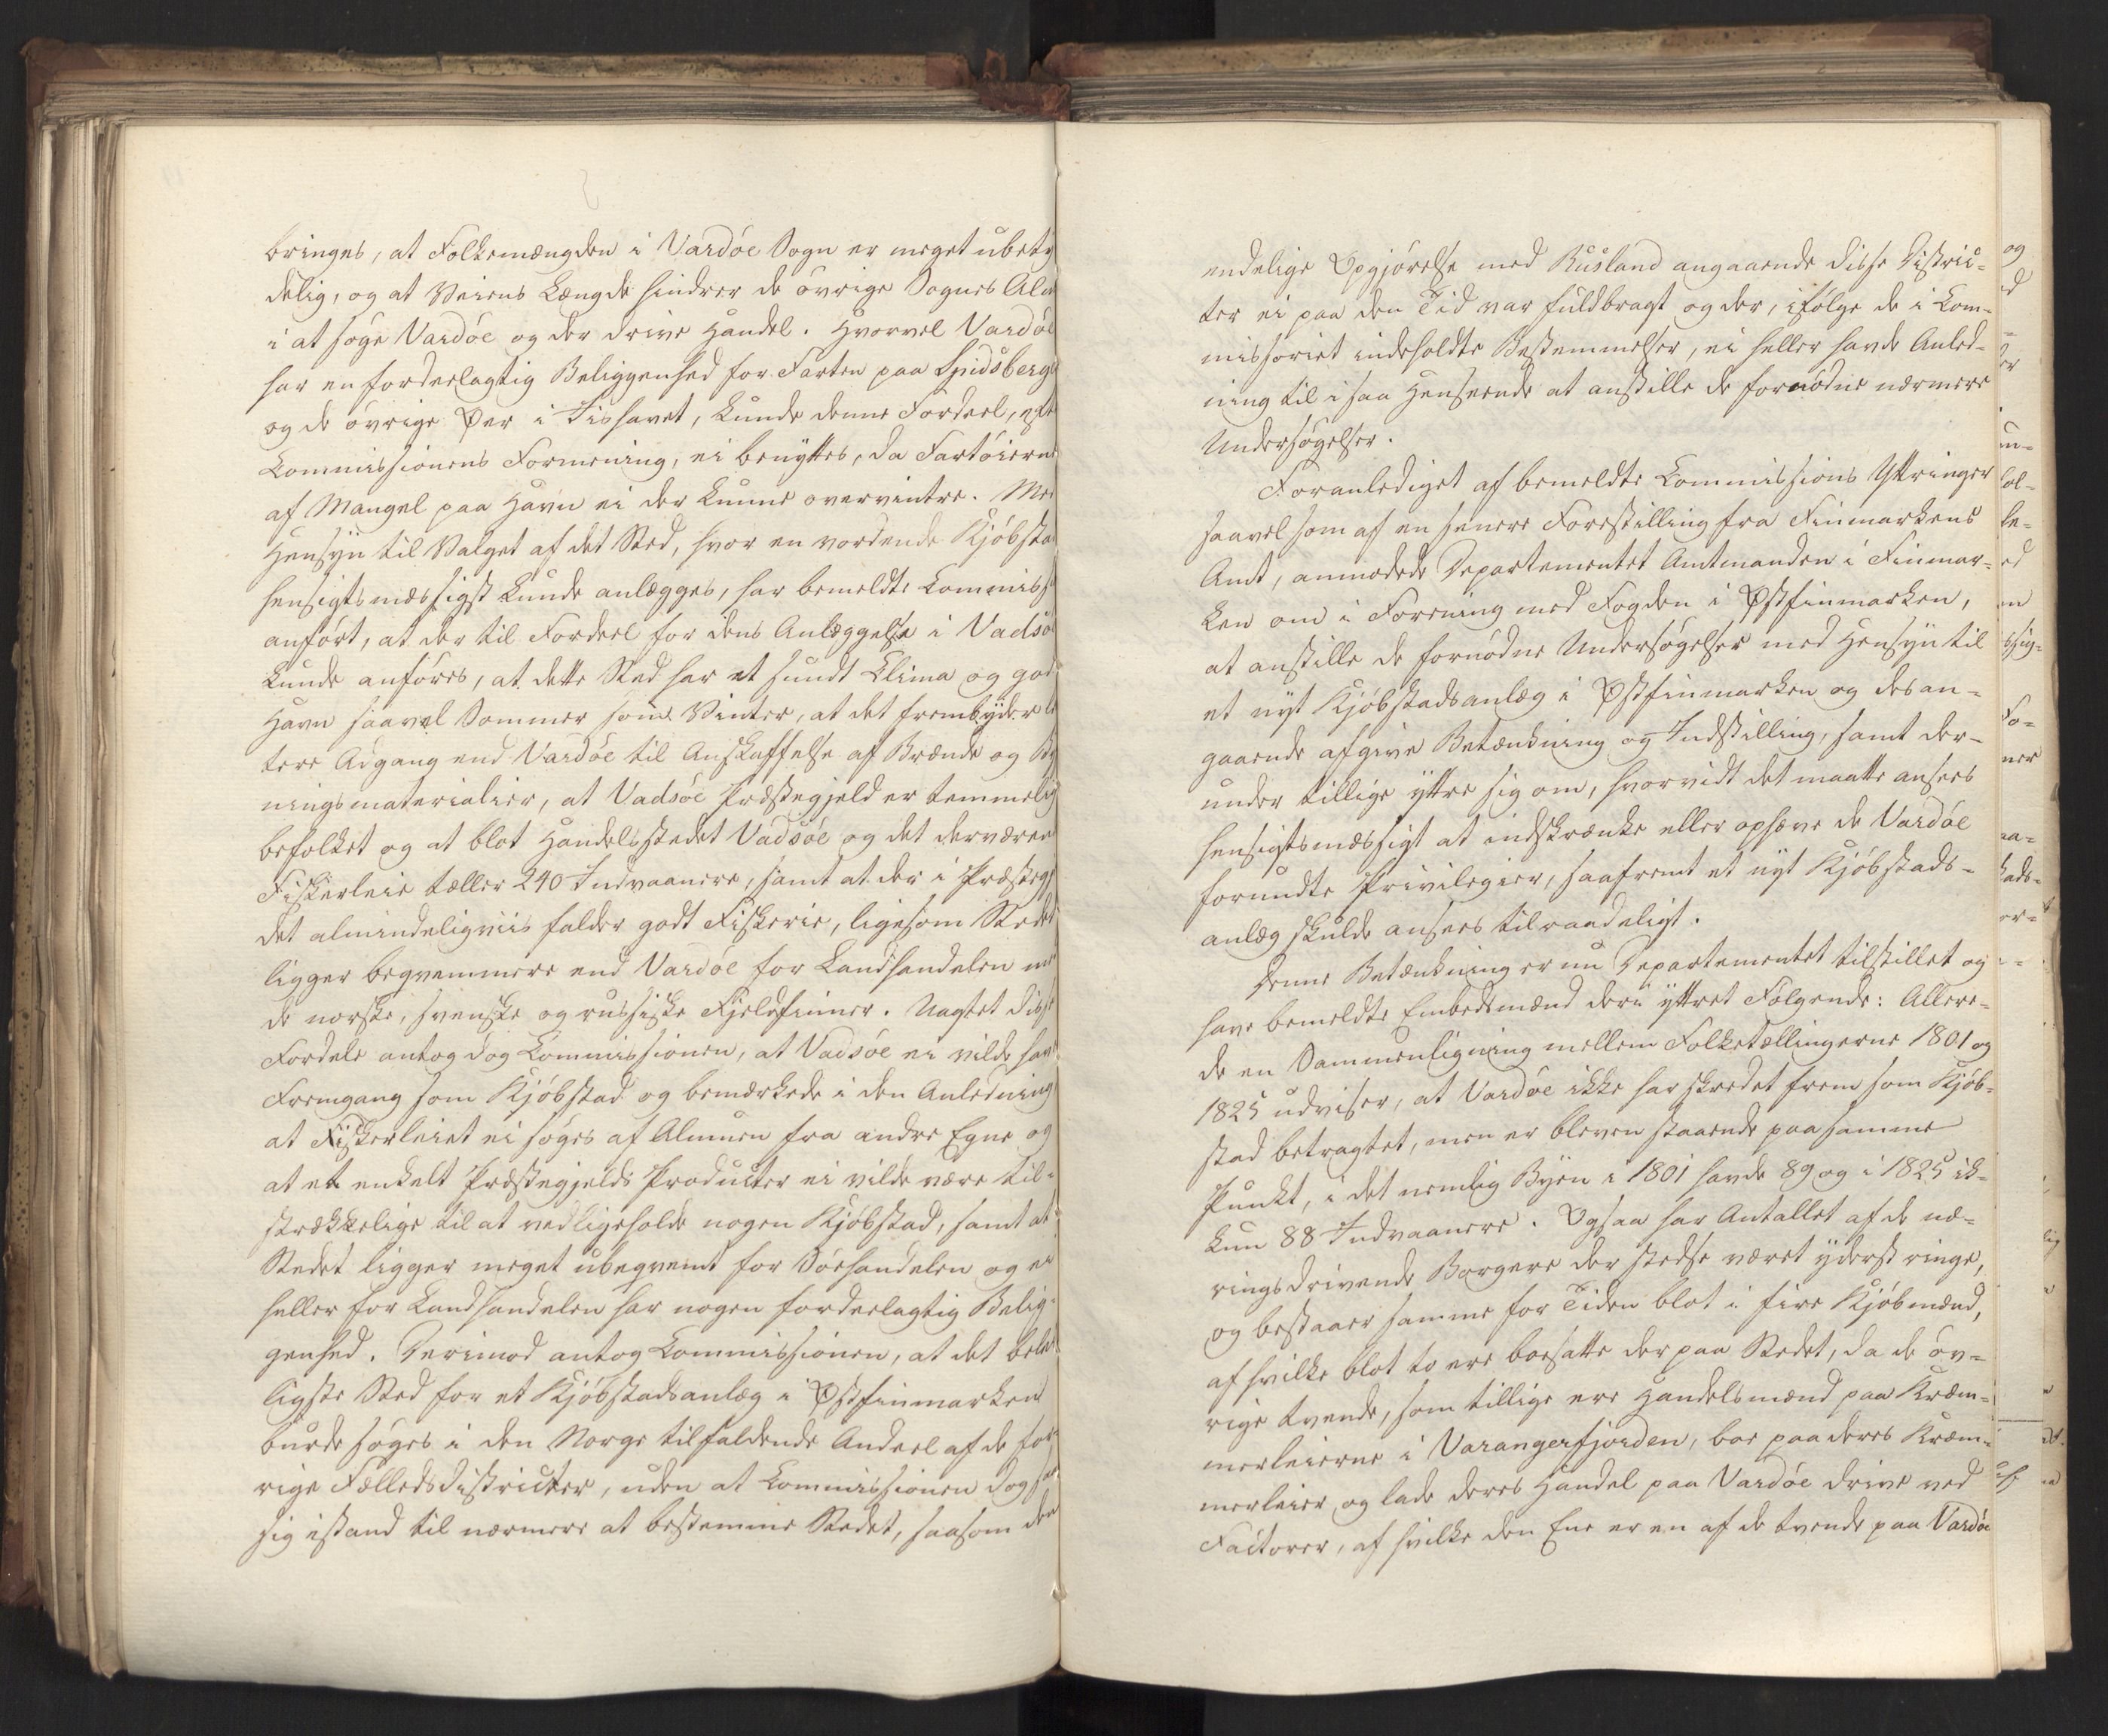 bringes, at Folkemængden i Vardöe Sogn er meget ubety
delig, og at Veiens Længde hindrer de övrige Sognes Alm
i at söge Vardöe og der drive Handel. Hvorvel Vardöe
har en fordeelagtig Beliggenhed for Farten paa Spidsberge
og de övrige Øer i Iishavet, kunde denne Fordeel, efte
Commissionens Formening, ei benyttes, da Fartöierne
af Mangel paa Havn ei der kunne overvintre. Med
Hensyn til Valget af det Sted, hvor en vordende Kjöbsta
hensigtsmæssigst kunde anlægges, har bemeldte Commiss
anfört, at der til Fordeel for dens Anlæggelse i Vadsöe
kunde anföres, at dette Sted har et sundt Clima og god
Havn saavel Sommer som Vinter, at det frembyder le
tere Adgang end Vardöe til Anskaffelse af Brænde og By
ningsmaterialier, at Vadsöe Præstegjeld er temmelig
befolket og at blot Handelsstedet Vadsöe og det derværen
Fiskerleie tæller 240 Indvaanere, samt at der i Præstegj
det almindeligviis falder godt Fiskerie, ligesom Stedet
ligger beqvemmere end Vardöe for Landhandelen med
de norske, svenske og russiske Fjeldfinner. Uagtet disse
Fordele antog dog Commissionen, at Vadsöe ei vilde have
Fremgang som Kjöbstad og bemærkede i den Anledning
at Fiskerleiet ei söges af Almuen fra andre Egne og
at et enkelt Præstegjelds Producter ei vilde være til-
strækkelige til at vedligeholde nogen Kjöbstad, samt at
Stedet ligger meget ubeqvemt for Söehandelen og ei
heller for Landhandelen har nogen fordeelagtig Belig-
genhed. Derimod antog Commissionen, at det belei
ligste Sted for et Kjöbstadsanlæg i Østfinmarken
burde söges i den Norge tilfaldende Andeel af de for-
rige Fælledsdistricter, uden at Commissionen dog saa
sig istand til nærmere at bestemme Stedet, saasom den
endelige Opgjörelse med Rusland angaaende disse Distric-
ter ei paa den Tid var fuldbragt og der, ifölge de i Com-
missoriet indeholdte Bestemmelser, ei heller havde Anled-
ning til i saa Henseende at anstille de fornödne nærmere
Undersögelser.
Foranlediget af bemeldte Commissions Yttringer
saavelsom af en senere Forestilling fra Finmarkens
Amt, anmodede Departementet Amtmanden i Finmar-
ken om i Forening med Fogden i Østfinmarken,
at anstille de fornödne Undersögelser med Hensyn til
et nyt Kjöbstadsanlæg i Østfinmarken og desan-
gaaende afgive Betænkning og Indstilling, samt der-
under tillige yttre sig om, hvorvidt det maatte ansees
hensigtsmæssigt at indskrænke eller ophæve de Vardöe
forundte Privilegier, saafremt et nyt Kjöbstads-
anlæg skulde ansees tilraadeligt.
Denne Betænkning er nu Departementet tilstillet og
have bemeldte Embedsmænd deri yttret Fölgende: Allere-
de en Sammenligning mellem Folketællingerne 1801 og
1825 udviser, at Vardöe ikke har skredet frem som Kjöb-
stad betragtet, men er bleven staaende paa samme
Punkt, i det nemlig Byen i 1801 havde 89 og i 1825 ik-
kun 88 Indvaanere. Ogsaa har Antallet af de næ-
ringsdrivende Borgere der stedse været yderst ringe,
og bestaaer samme for Tiden blot i fire Kjöbmænd,
af hvilke blot to ere bosatte der paa Stedet, da de öv-
rige tvende, som tillige ere Handelsmænd paa Kræm-
merleierne i Varangerfjorden, boe paa deres Kræm-
merleier og lade deres Handel paa Vardöe drive ved
Factorer, af hvilke den Ene er en af de tvende paa Vardöe